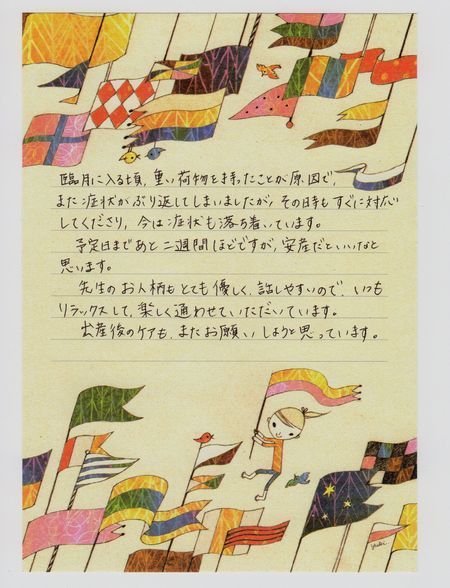 臨月に入る頃、重い荷物を持ったことが原因で、
また症状がぶり返してしまいましたが、その時もすぐに対応
してくださり、今は症状も落ち着いています。
予定日まであと二週間ほどですが、安産だといいなと
思います。
先生のお人柄もとても優しく、話しやすいので、いつも
リラックスして、楽しく通わせていただいています。
出産後のケアも、またお願いしようと思っています。